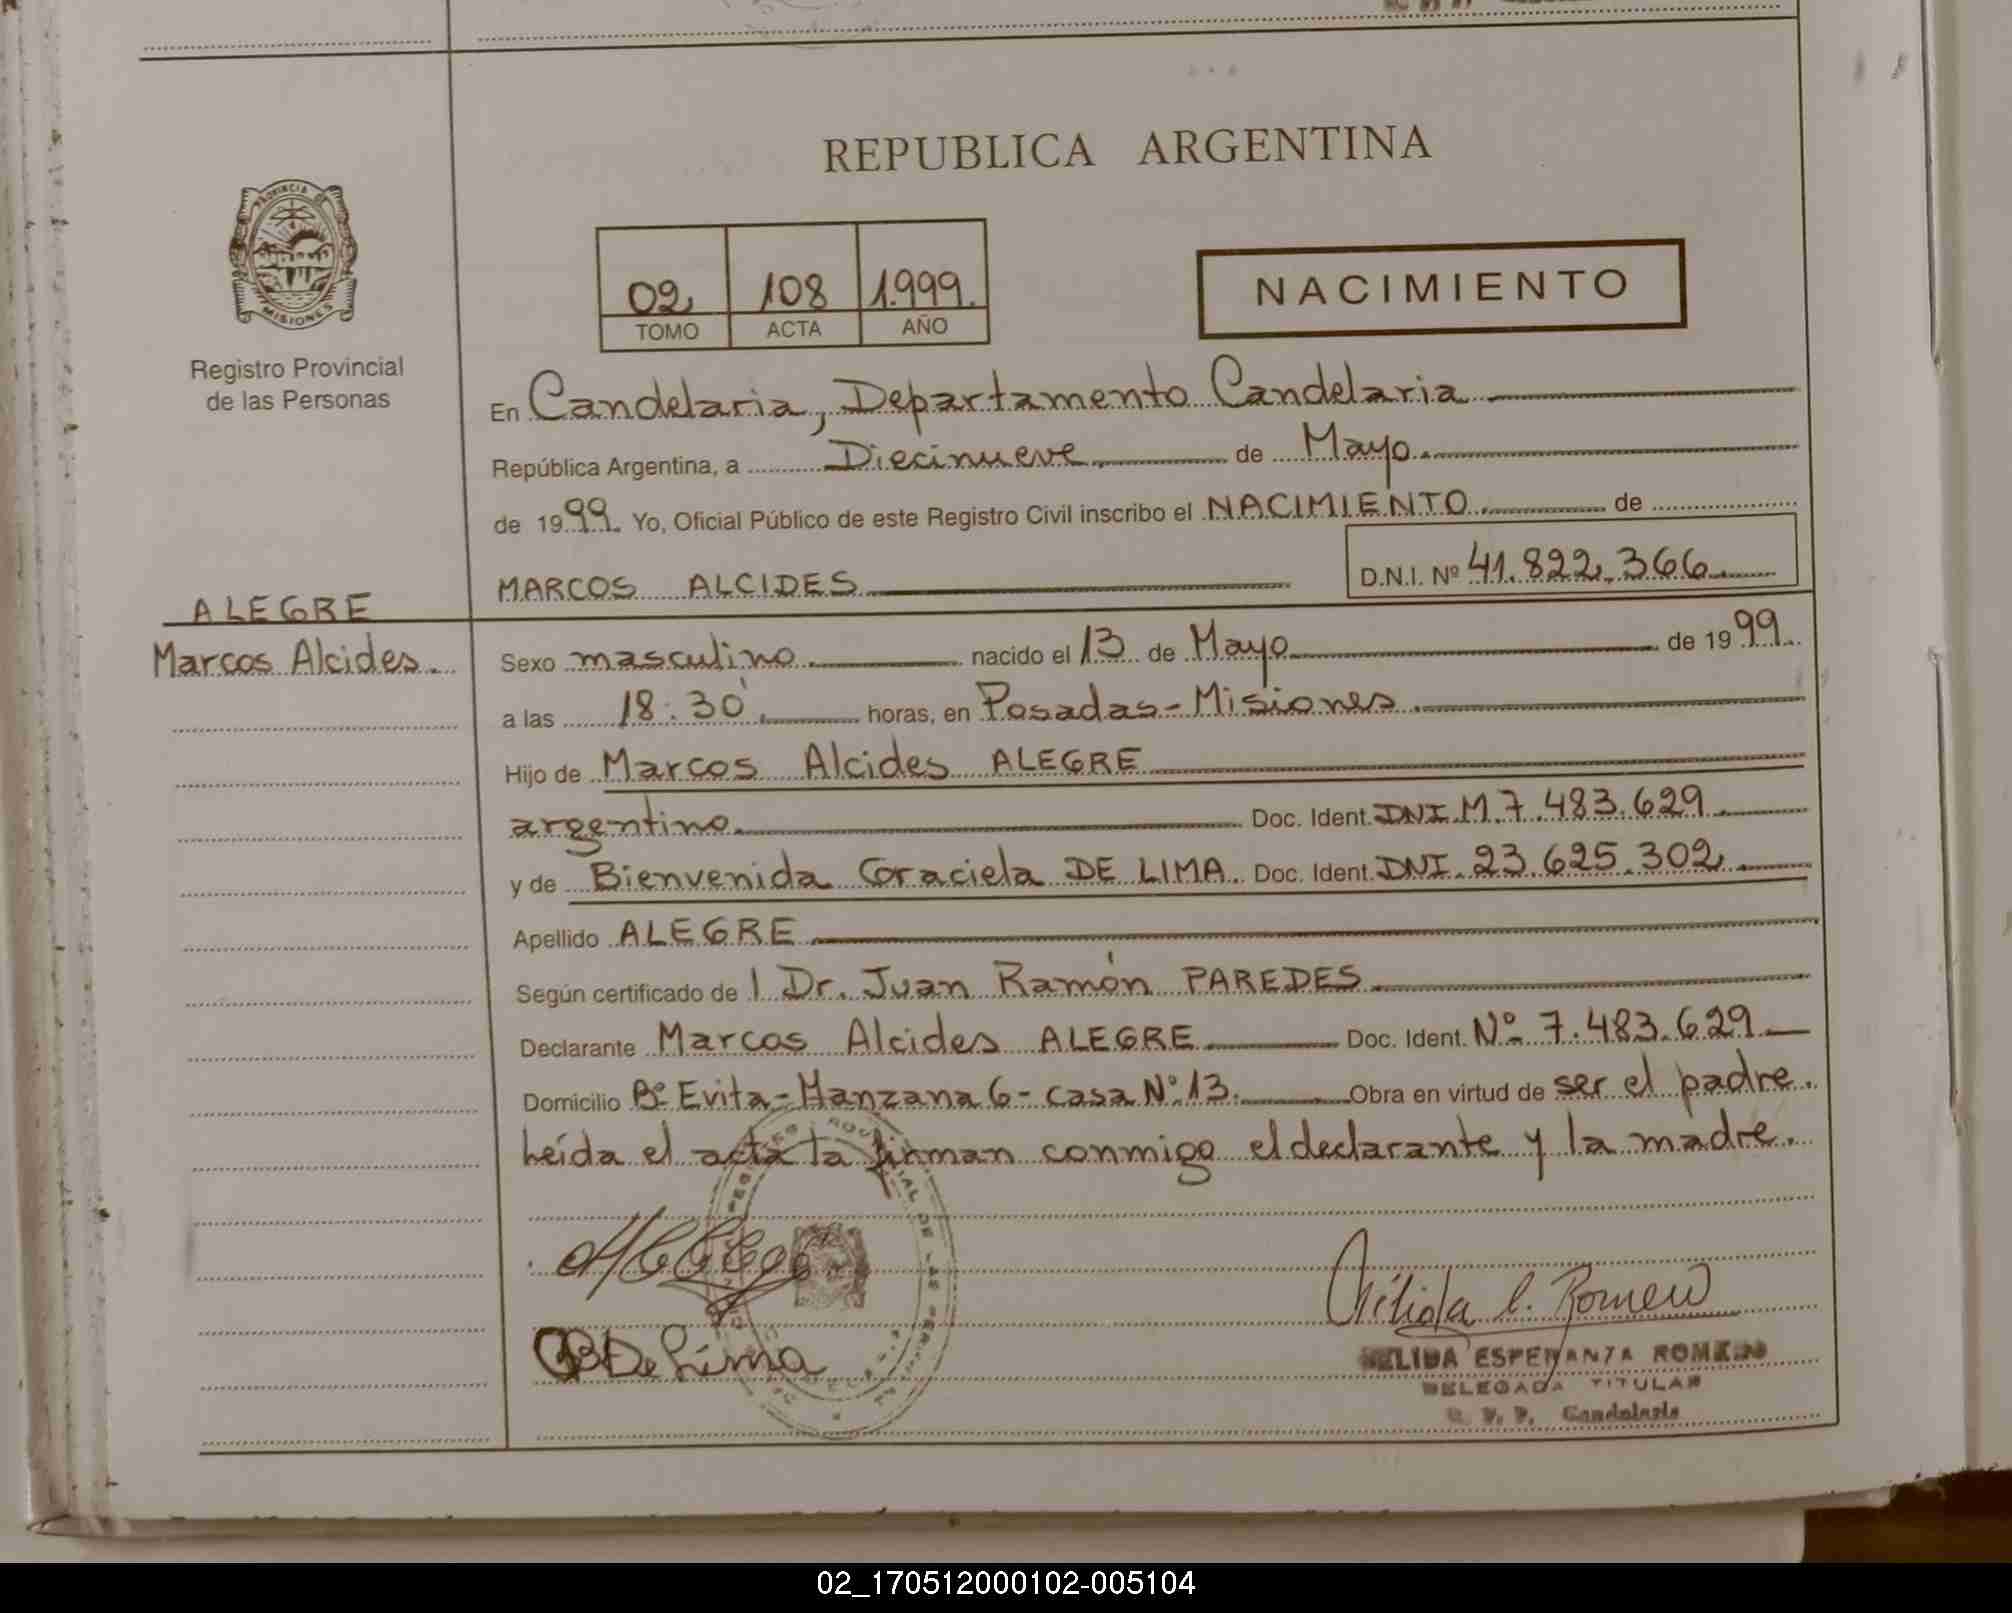 REPUBLICA ARGENTINA
PROVINCIA DE
MISIONES
Registro Provincial
de las Personas
02 108 1.999.
TOMO ACTA AÑO
NACIMIENTO
En Candelaria, Departamento Candelaria
República Argentina, a Diecinueve de Mayo
de 1999. Yo, Oficial Público de este Registro Civil inscribo el NACIMIENTO de
MARCOS ALCIDES D.N.I. Nº 41.822.366
ALEGRE
Marcos Alcides.
Sexo masculino nacido el 13 de Mayo de 1999
a las 18:30' horas, en Posadas-Misiones
Hijo de Marcos Alcides ALEGRE
argentino Doc. Ident. DNI.M.7.483.629
y de Bienvenida Graciela DE LIMA. Doc. Ident. DNI.23.625.302
Apellido ALEGRE
Según certificado de l Dr. Juan Ramón PAREDES
Declarante Marcos Alcides ALEGRE Doc. Ident. Nº 7.483.629
Domicilio Bº Evita-Manzana 6- casa Nº 13. Obra en virtud de ser el padre.
Leída el acta la firman conmigo el declarante y la madre.
GB De Lima
Nélida E. Romero
NELIDA ESPERANZA ROMERO
DELEGADA TITULAR
R. P. P. Candelaria
02_170512000102-005104